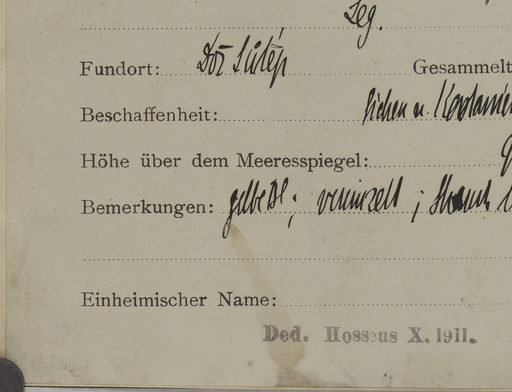 Leg.
Fundort: Doi Sutép Gesammelt
Beschaffenheit: Eichen u. Kastanien
Höhe über dem Meeresspiegel:
Bemerkungen: gelbe Bl.; vereinzelt; Strauch
Einheimischer Name:
Ded. Hosseus X. 1911.